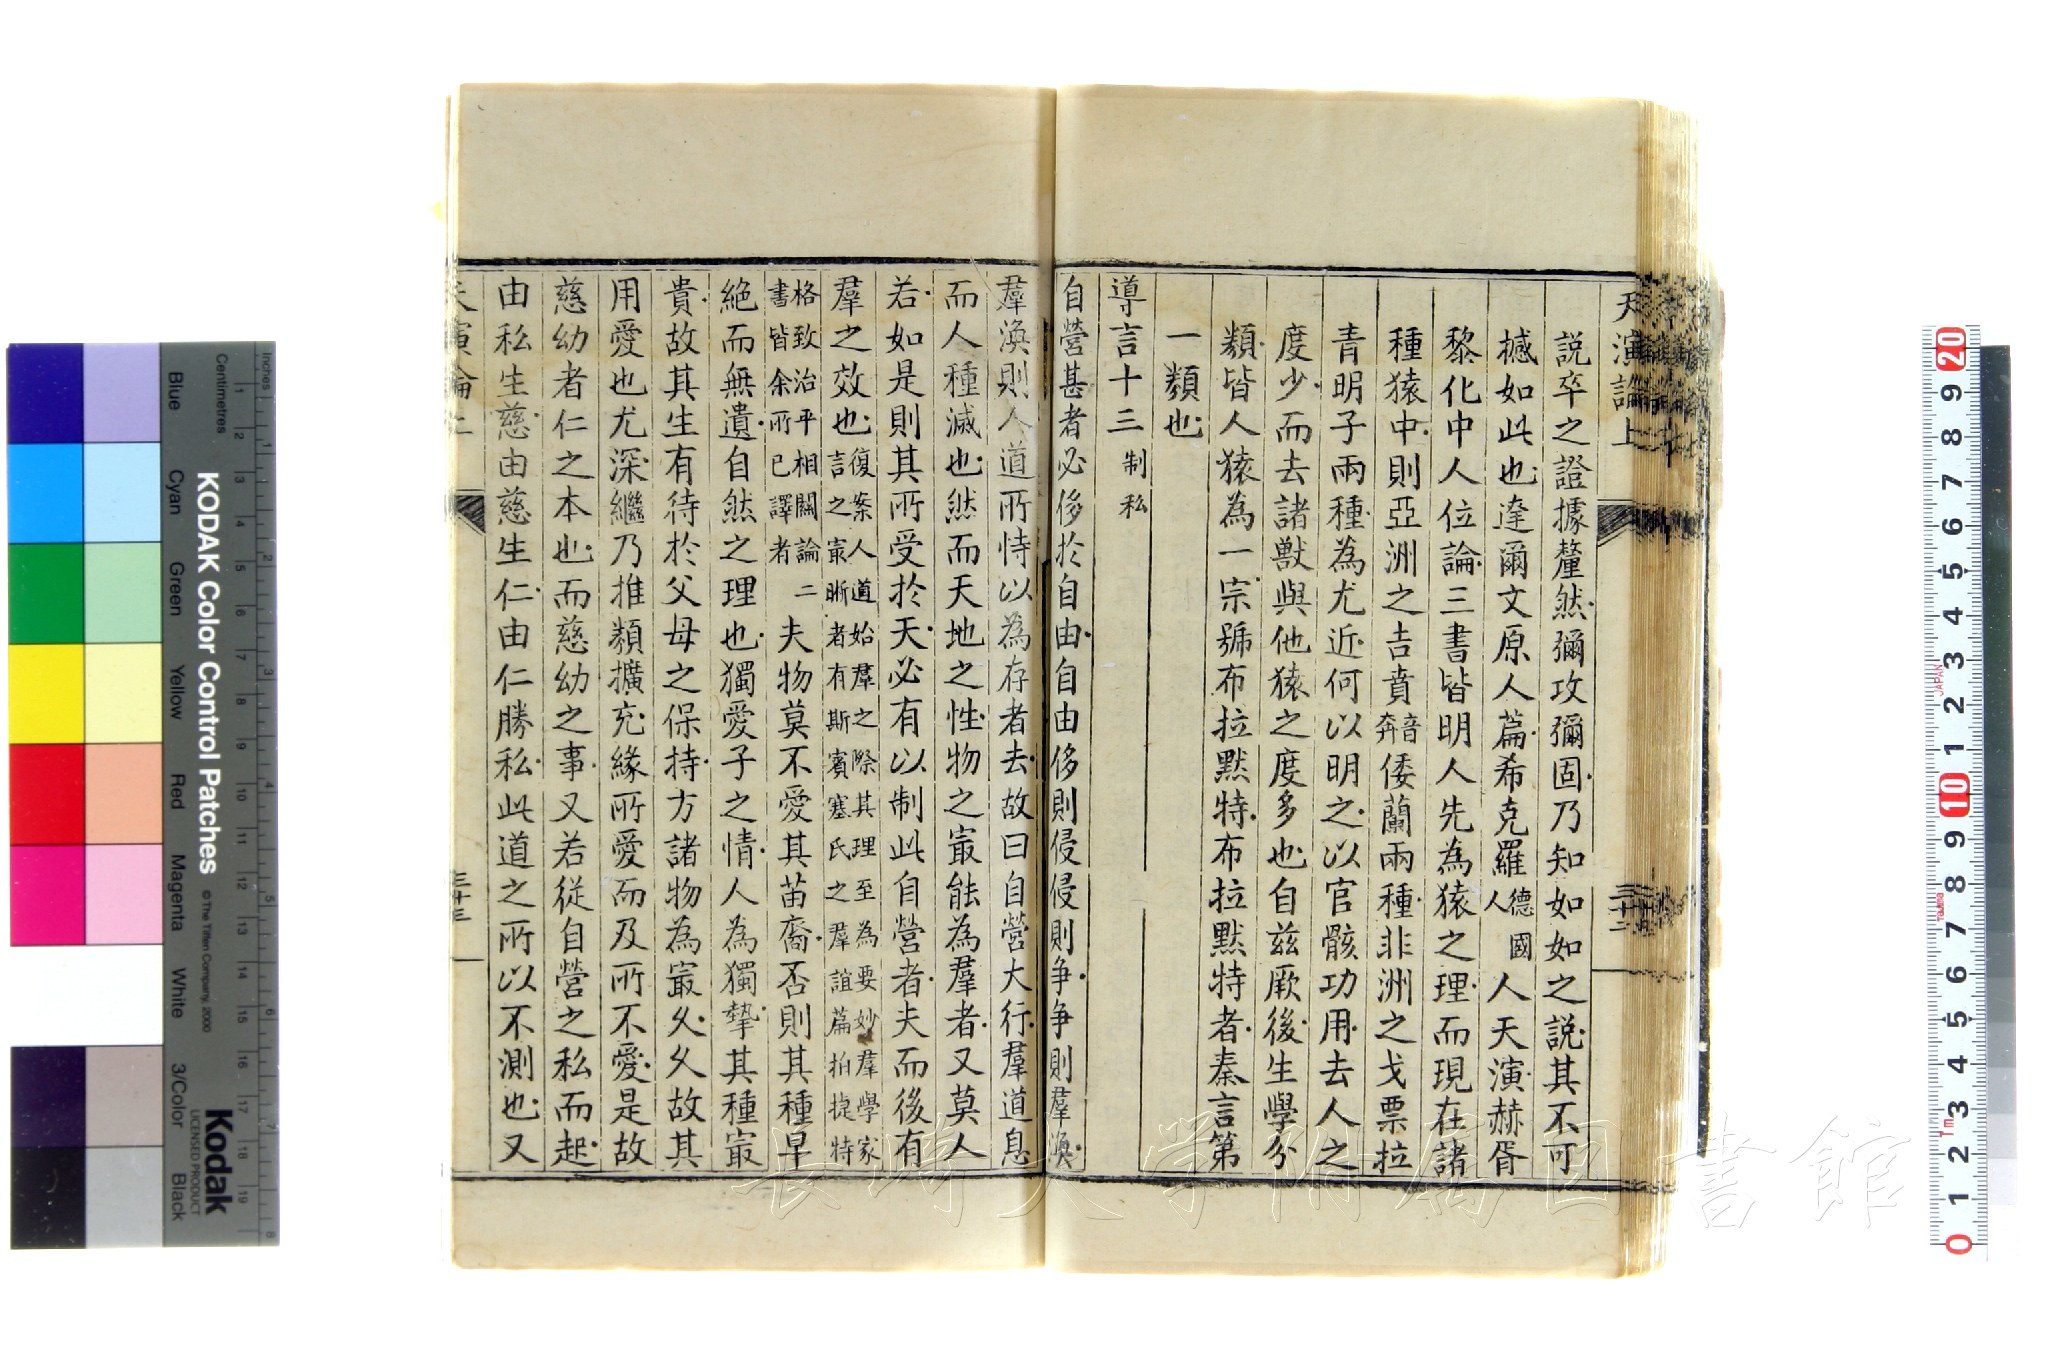 天演論上
說卒之證據釐然彌攻彌固乃知如如之說其不可
撼如此也達爾文原人篇希克羅德國人人天演赫胥
黎化中人位論三書皆明人先為猿之理而現在諸
種猿中則亞洲之吉賁音奔倭蘭兩種非洲之戈票拉
青明子兩種為尤近何以明之以官骸功用去人之
度少而去諸獸與他猿之度多也自茲厥後生學分
類皆人猿為一宗號布拉默特布拉默特者秦言第
一類也
導言十三 制私
自營甚者必侈於自由自由侈則侵侵則爭爭則羣渙
羣渙則人道所恃以為存者去故曰自營大行羣道息
而人種滅也然而天地之性物之最能為羣者又莫人
若如是則其所受於天必有以制此自營者夫而後有
羣之效也復案人道始羣之際其理至為要妙羣學家言之最晰者有斯賓塞氏之羣誼篇拍捷特
格致治平相關論二書皆余所已譯者夫物莫不愛其苗裔否則其種早
絕而無遺自然之理也獨愛子之情人為獨摯其種最
貴故其生有待於父母之保持方諸物為最久久故其
用愛也尤深繼乃推類擴充緣所愛而及所不愛是故
慈幼者仁之本也而慈幼之事又若從自營之私而起
由私生慈由慈生仁由仁勝私此道之所以不測也又
三十三
KODAK Color Control Patches
© The Tiffen Company, 2000
Kodak
LICENSED PRODUCT
Inches
Centimetres
Blue
Cyan
Green
Yellow
Red
Magenta
White
3/Color
Black
長崎大学附属図書館
JAPAN